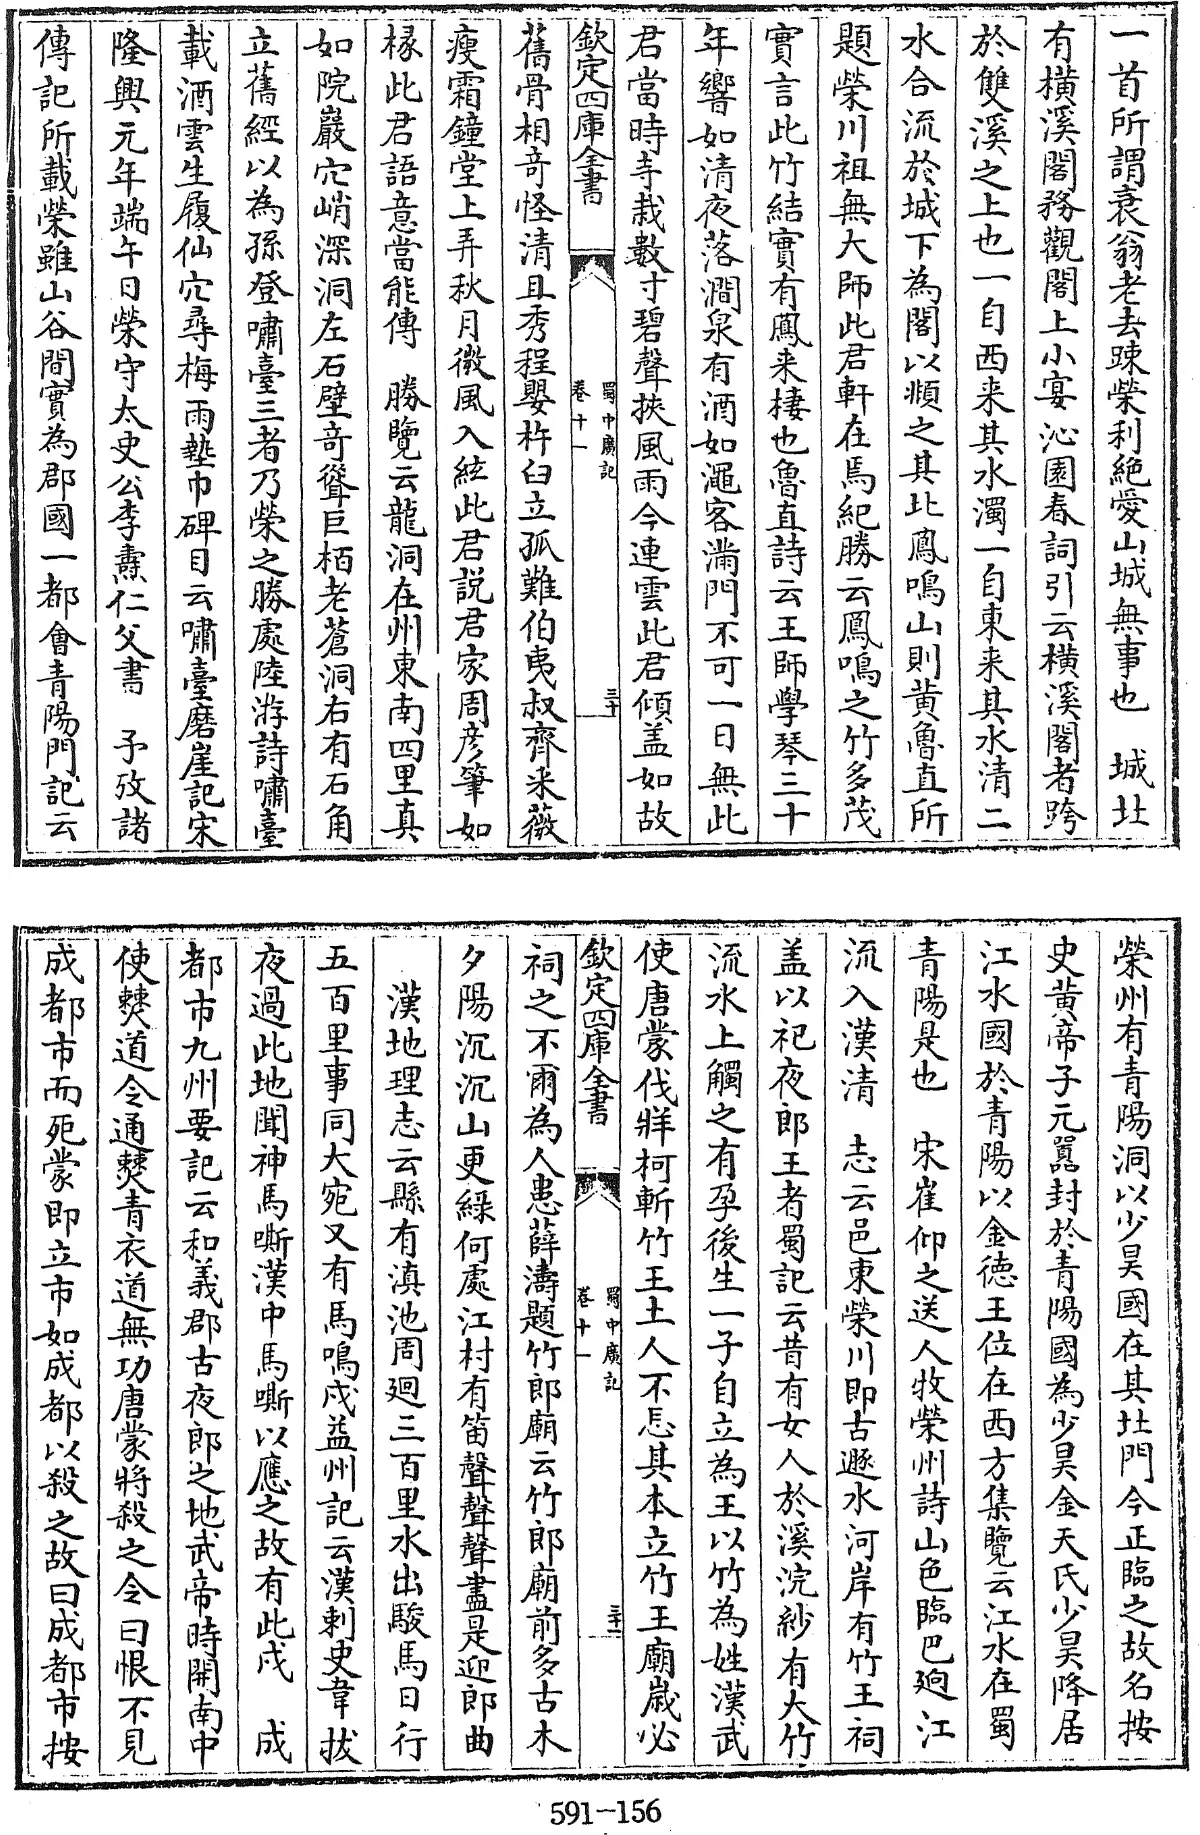 一首所謂衰翁老去踈榮利絶愛山城無事也　城北
有横溪閣務觀閣上小宴沁園春詞引云横溪閣者跨
於雙溪之上也一自西来其水濁一自東来其水清二
水合流於城下為閣以頫之其北鳳鳴山則黄魯直所
題榮川祖無大師此君軒在焉紀勝云鳳鳴之竹多茂
實言此竹結實有鳳来棲也魯直詩云王師學琴三十
年響如清夜落澗泉有酒如澠客滿門不可一日無此
君當時寺栽數寸碧聲挾風雨今連雲此君傾盖如故
欽定四庫全書
蜀中廣記
卷十一
三十
舊骨相奇怪清且秀程嬰杵臼立孤難伯夷叔齊采薇
瘦霜鐘堂上弄秋月微風入絃此君説君家周彦筆如
椽此君語意當能傳　勝覽云龍洞在州東南四里真
如院巖穴峭深洞左石壁奇聳巨栢老蒼洞右有石角
立舊經以為孫登嘯臺三者乃榮之勝處陸游詩嘯臺
載酒雲生履仙穴尋梅雨墊巾碑目云嘯臺磨崖記宋
隆興元年端午日榮守太史公李燾仁父書　予攷諸
傳記所載榮雖山谷間實為郡國一都會青陽門記云
榮州有青陽洞以少昊國在其北門今正臨之故名按
史黄帝子元囂封於青陽國為少昊金天氏少昊降居
江水國於青陽以金德王位在西方集覽云江水在蜀
青陽是也　宋崔仰之送人牧榮州詩山色臨巴逈江
流入漢清　志云邑東榮川即古遯水河岸有竹王祠
盖以祀夜郎王者蜀記云昔有女人於溪浣紗有大竹
流水上觸之有孕後生一子自立為王以竹為姓漢武
使唐蒙伐牂柯斬竹王土人不忘其本立竹王廟歲必
欽定四庫全書
蜀中廣記
卷十一
三十一
祠之不爾為人患薛濤題竹郎廟云竹郎廟前多古木
夕陽沉沉山更緑何處江村有笛聲聲聲盡是迎郎曲
漢地理志云縣有滇池周廻三百里水出駿馬日行
五百里事同大宛又有馬鳴戍益州記云漢刺史韋拔
夜過此地聞神馬嘶漢中馬嘶以應之故有此戍　成
都市九州要記云和義郡古夜郎之地武帝時開南中
使僰道令通僰青衣道無功唐蒙將殺之令曰恨不見
成都市而死蒙即立市如成都以殺之故曰成都市按
591-156